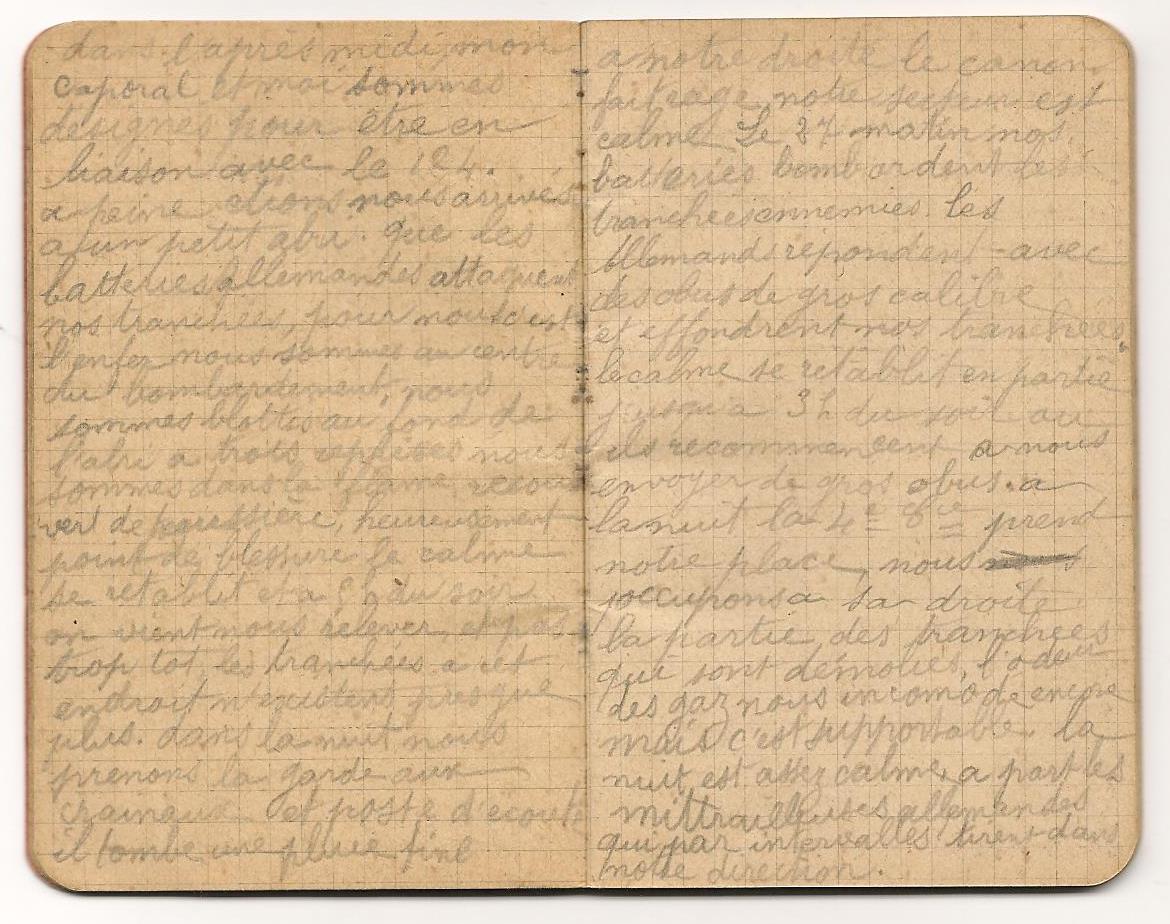 dans l'après midi mon
caporal et moi sommes
designés pour être en
liaison avec le 124.
a peine etions nous arrivés
a un petit abri. que les
batteries allemandes attaquent
nos tranchées, pour nous c'est
l'enfer nous sommes au centre
du bombardement, nous
sommes blottis au fond de
l'abri a trois reprises nous
sommes dans la flame, recou
vert de poussiere, heureusement
point de blessure le calme
se retablit et a h du soir
on vient nous relever, et pas
trop tot, les tranchées a cet
endroit n'existent presque
plus. dans la nuit nous
prenons la garde aux
crainaux et poste d'ecoute
il tombe une pluie fine
a notre droite le canon
fait rage, notre secteur est
calme. Le 27 matin nos
batteries bombardent les
tranchées ennemies. les
Allemands répondent avec
des obus de gros calibre
et effondrent nos tranchées.
le calme se retablit en partie
jusqu'a 3h du soir ou
ils recommencent a nous
envoyer de gros obus. a
la nuit la 4e 8ve prend
notre place, nous
occupons a sa droite
la partie des tranchées
qui sont démolies, l'odeur
des gaz nous incomode encore
mais c'est supportable. la
nuit est assez calme, a part les
mittrailleuses allemandes
qui par intervalles tirent dans
notre direction.